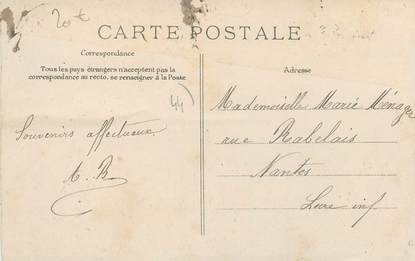 20€
CARTE POSTALE
Correspondance
Tous les pays étrangers n'acceptent pas la
correspondance au recto, se renseigner à la Poste
44)
Souvenirs affectueux
A. B.
Adresse
Mademoiselle Marie Ménager
rue Rabelais
Nantes
Loire inf